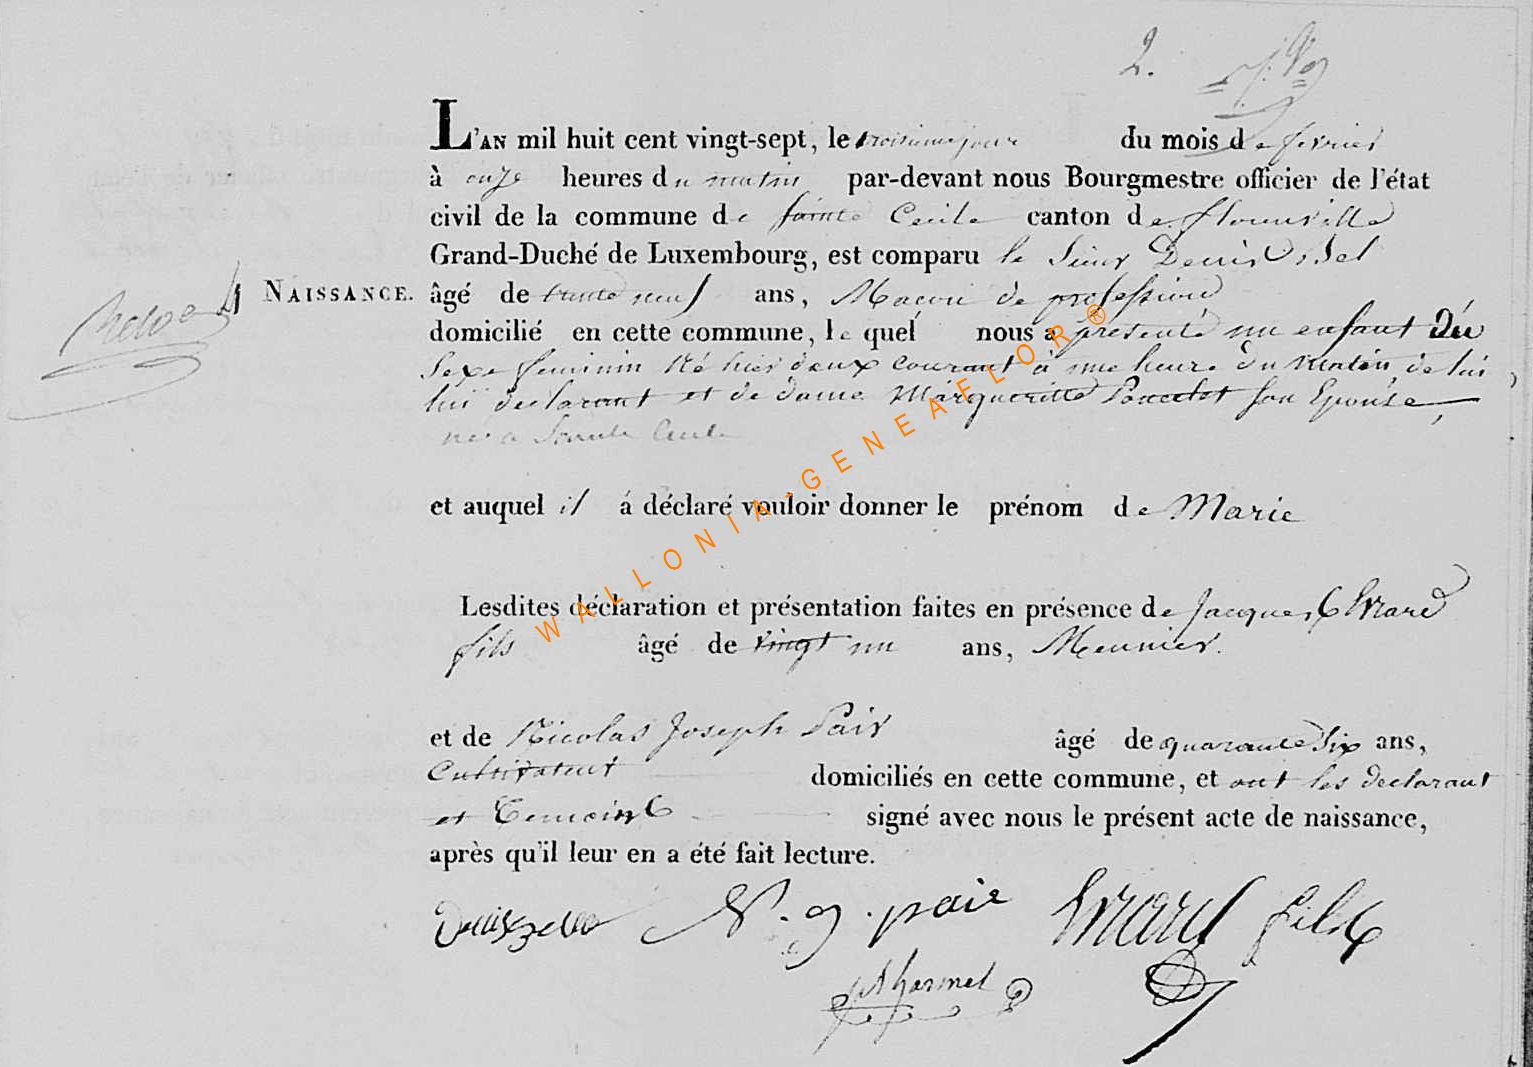 2.
L'AN mil huit cent vingt-sept, le troisieme jour du mois de fevrier
à onze heures du matin par-devant nous Bourgmestre officier de l'état
civil de la commune de sainte Cecile canton de florenville
Grand-Duché de Luxembourg, est comparu le Sieur Denis
NAISSANCE. âgé de trente neuf ans, Macon de profession
domicilié en cette commune, le quel nous a presenté un enfant du
Sexe feminin Né hier deux courant à une heure du matin de lui
lui declarant et de dame Margueritte Poncelet son Epouse,
né a Sainte Cecile
et auquel il á déclaré vouloir donner le prénom de Marie
Lesdites déclaration et présentation faites en présence de Jacques Evrard
fils âgé de vingt un ans, Meunier.
et de Nicolas Joseph Pair âgé de quarante Six ans,
Cultivateur domiciliés en cette commune, et ont les declarant
et Temoins signé avec nous le présent acte de naissance,
après qu'il leur en a été fait lecture.
N. J. paie Evrard fils
WALLONIA-GENEAFLOR®